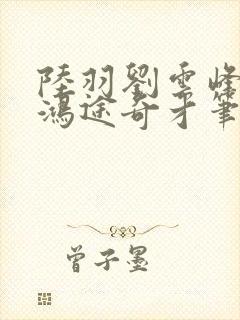 陸羽劉雲峰
鴻途奇才筆
曾子墨